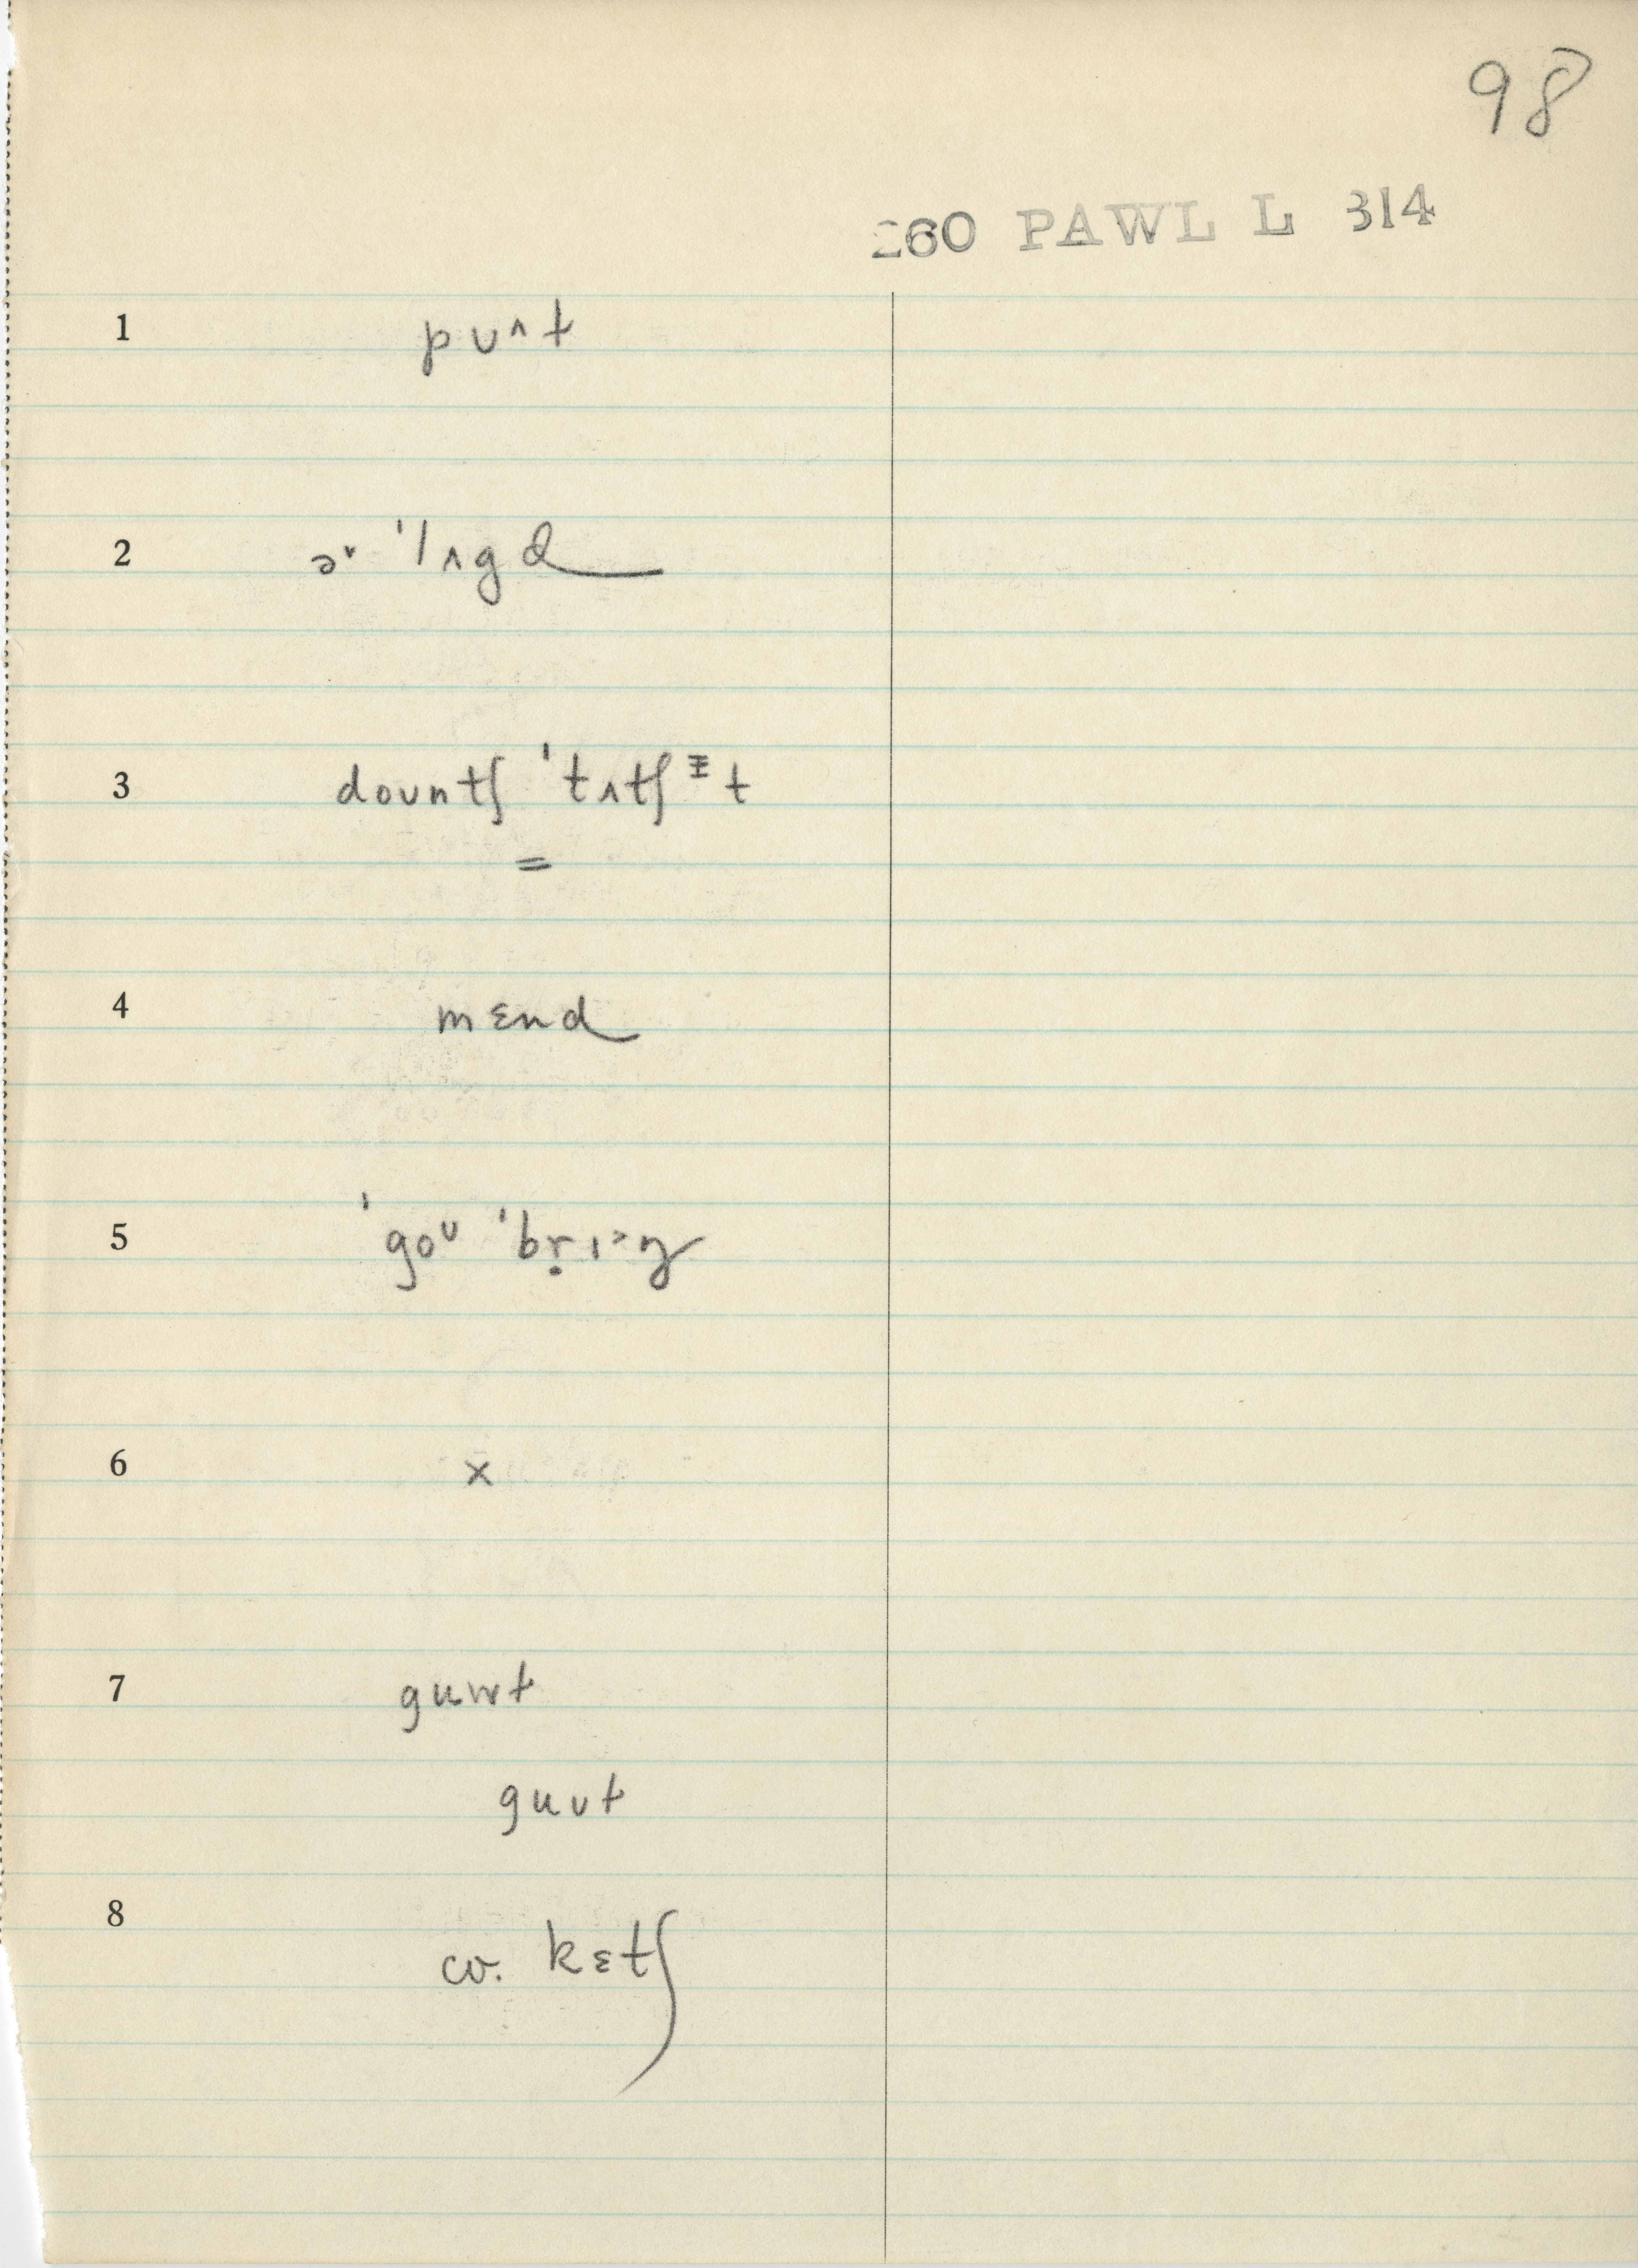 98
260 PAWL L 314
1 pʊᶺt
2 ə˅ ˈlʌgd
3 doʊntʃ ˈtʌtʃ ᵻt
=
4 mɛnd
5 ˈgoᶷ ˈbṛɪ˃ŋ
6 x
7 gʉwt
gʉʊt
8 cv. kɛtʃ